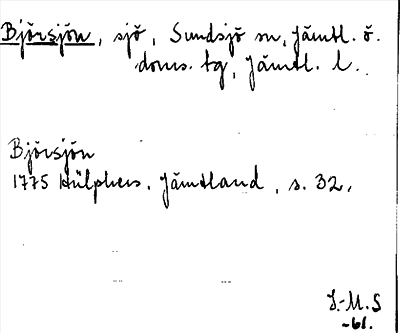 Björsjön, sjö, Sundsjö sn, Jämtl. ö.
doms. tg, Jämtl. l.
Björsjön
1775 Hülphers. Jämtland, s. 32.
I.-M.S
-61.